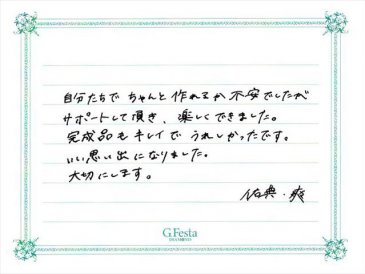 自分たちで ちゃんと 作れるか 不安でしたが
サポートして頂き、楽しくできました。
完成品も キレイで うれしかったです。
いい思い出になりました。
大切にします。
佑典・爽
G.Festa
DIAMOND